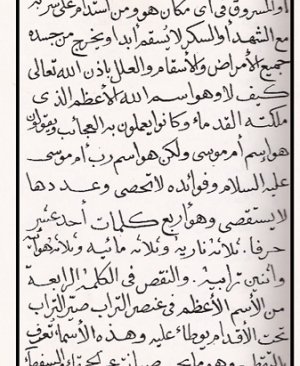 أو المسروق في أي مكان هو ومن استدام على شربه
مع الشهد أو السكر لا يسقم أبدا ويخرج من جسده
جميع الأمراض والأسقام والعلل بإذن الله تعالى
كيف لا وهو اسم الله الأعظم الذي
ملكته القدماء وكانوا يعملون به العجائب ويقولون
هو اسم أم موسى ولكن هو اسم رب أم موسى
عليه السلام وفوائده لا تحصى وعددها
لا يستقصى وهو أربع كلمات أحد عشر
حرفا ثلاثة نارية وثلاثة مائية وثلاثة هوائية
واثنين ترابية والنقص في الكلمة الرابعة
من الأسم الأعظم في عنصر التراب صير التراب
تحت الأقدام يوطأ عليه وهذه الأسماء تعرف